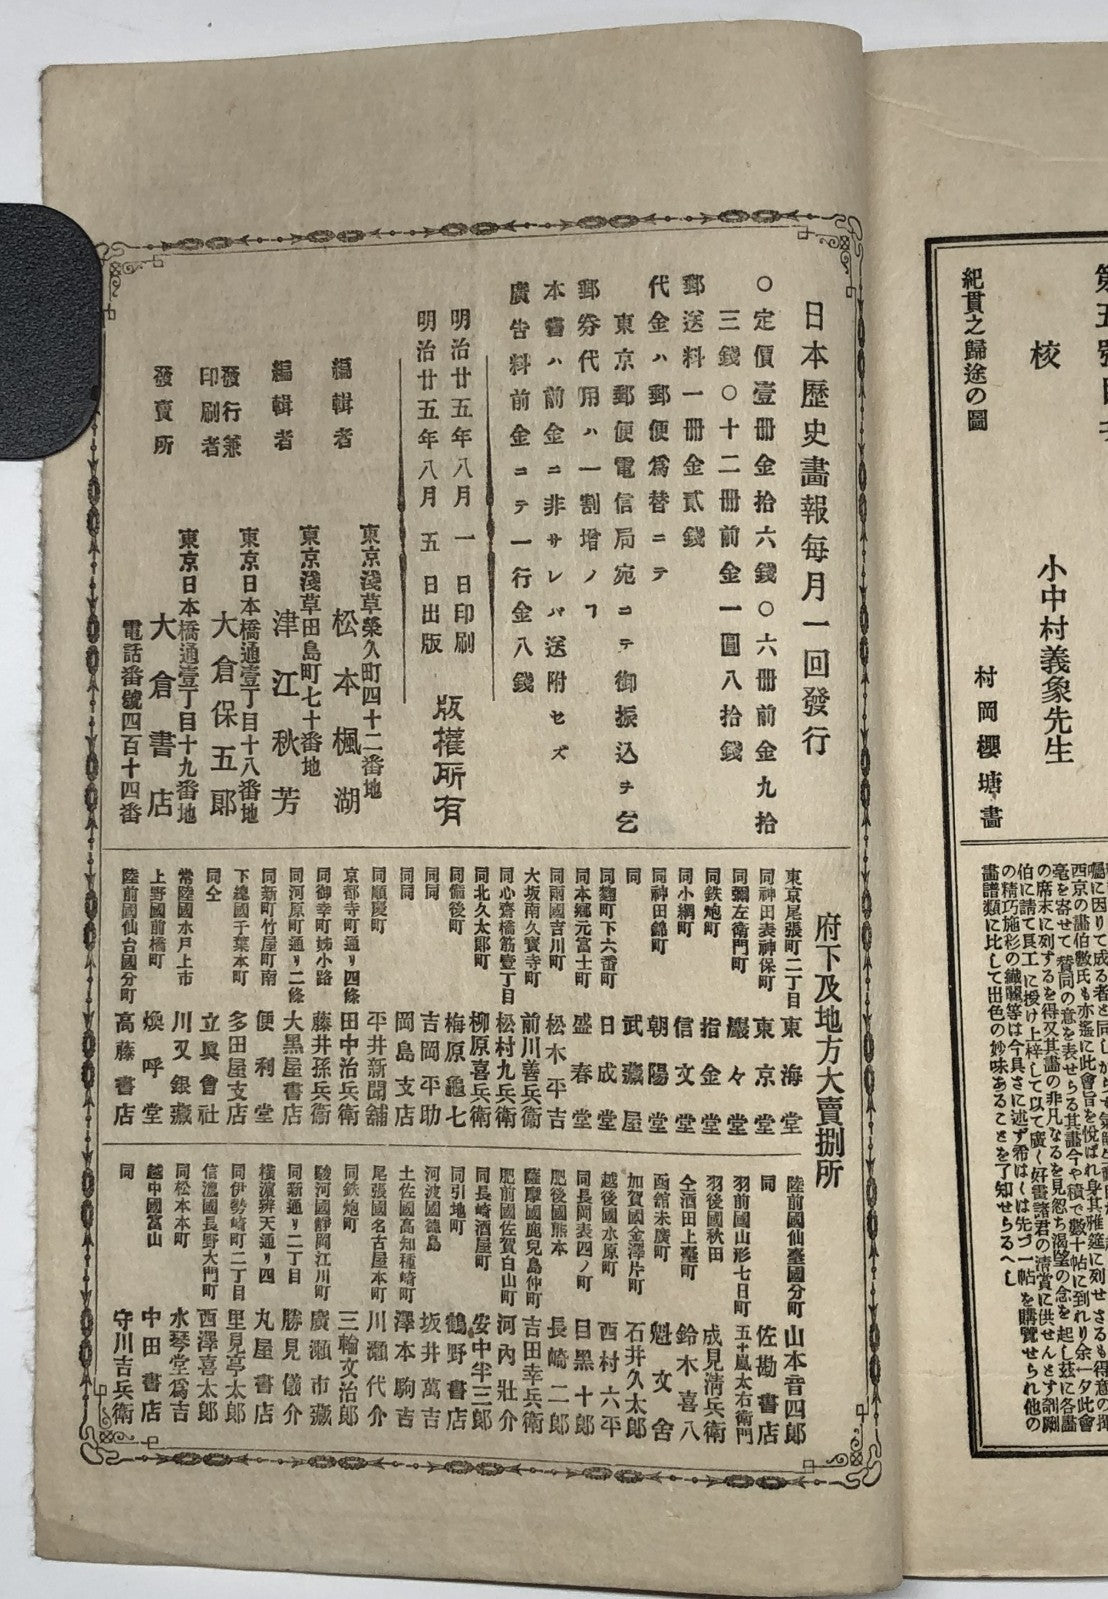 第五號目
校
小中村義象先生
紀貫之歸途の圖
村岡櫻塘畵
伯に請て具工に授け上梓して以て廣く好畵諸君の淸賞に供せんとす
畵譜類に比して出色の妙味あることを了知せらるへし
日本歷史畵報每月一回發行
○定價壹册金拾六錢○六册前金九拾
三錢○十二册前金一圓八拾錢
郵送料一册金貳錢
代金ハ郵便爲替ニテ
東京郵便電信局宛ニテ御振込ヲ乞フ
郵券代用ハ一割增ノ
本書ハ前金ニ非サレバ送附セズ
廣吿料前金ニテ一行金八錢
明治廿五年八月一日印刷
明治廿五年八月五日出版
版權所有
東京淺草榮久町四十二番地
編輯者 松本楓湖
東京淺草田島町七十番地
編輯者 津江秋芳
東京日本橋通壹丁目十八番地
發行兼印刷者 大倉保五郞
東京日本橋通壹丁目十九番地
發賣所 大倉書店
電話番號四百十四番
府下及地方大賣捌所
東京尾張町二丁目 東海堂
同神田表神保町 東京堂
同彌左衞門町 巖々堂
同鉄炮町 指金堂
同小網町 信文堂
同神田錦町 朝陽堂
同 武藏屋
同麴町下六番町 日成堂
同本鄕元富士町 盛春堂
同兩國吉川町 松木平吉
大坂南久寶寺町 前川善兵衞
同心齋橋筋壹丁目 松村九兵衞
同北久太郞町 柳原喜兵衞
同備後町 梅原龜七
同同 吉岡平助
同同 岡島支店
同順慶町 平井新聞舖
京都寺町通リ四條 田中治兵衞
同御幸町姊小路 藤井孫兵衞
同河原町通リ二條 大黑屋書店
同新町竹屋町南 便利堂
下總國千葉本町 多田屋支店
同仝 立眞會社
常陸國水戶上市 川又銀藏
上野國前橋町 煥呼堂
陸前國仙台國分町 高藤書店
陸前國仙臺國分町 山本音四郞
同 佐勘書店
羽前國山形七日町 五十嵐太右衞門
羽後國秋田 成見淸兵衞
仝酒田上臺町 鈴木喜八
函舘末廣町 魁文舍
加賀國金澤片町 石井久太郞
越後國水原町 西村六平
同長岡表四ノ町 目黑十郞
肥後國熊本 長崎二郞
薩摩國鹿兒島仲町 吉田幸兵衞
肥前國佐賀白山町 河內壯介
同長崎酒屋町 安中半三郞
同引地町 鶴野書店
河波國德島 坂井萬吉
土佐國高知種崎町 澤本駒吉
尾張國名古屋本町 川瀨代介
同鉄炮町 三輪文治郞
駿河國靜岡江川町 廣瀨市藏
同新通リ二丁目 勝見儀介
橫濱辨天通リ四 丸屋書店
同伊勢崎町二丁目 里見亭太郞
信濃國長野大門町 西澤喜太郞
同松本本町 水琴堂爲吉
越中國富山 中田書店
同 守川吉兵衞